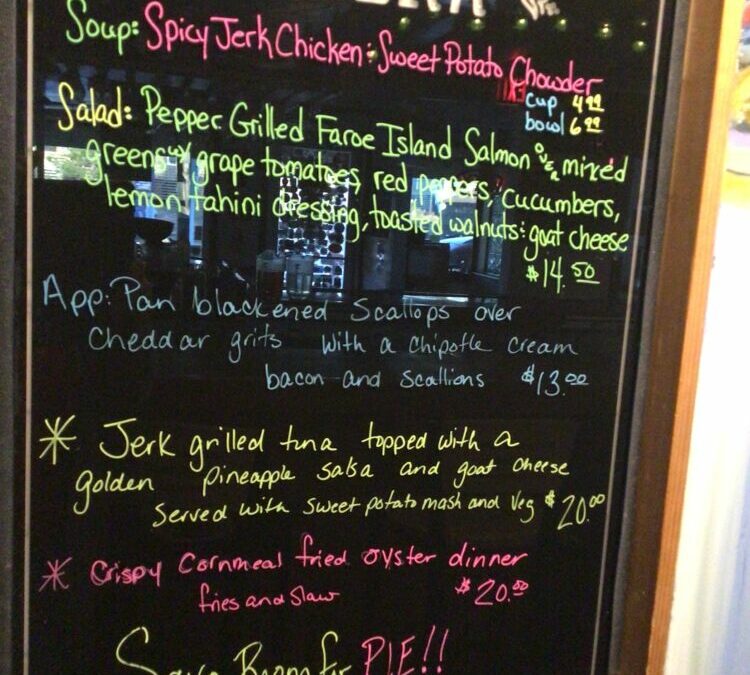 Soup: Spicy Jerk Chicken & Sweet Potato Chowder
cup 4.99
bowl 6.99
Salad: Pepper Grilled Faroe Island Salmon over mixed
greens w/ grape tomatoes, red peppers, cucumbers,
lemon tahini dressing, toasted walnuts & goat cheese
$14.50
App: Pan blackened Scallops over
Cheddar grits with a chipotle cream
bacon and scallions $13.00
* Jerk grilled tuna topped with a
golden pineapple salsa and goat cheese
served with sweet potato mash and veg $20.00
* Crispy Cornmeal fried oyster dinner
fries and slaw $20.50
Save Room for PIE!!